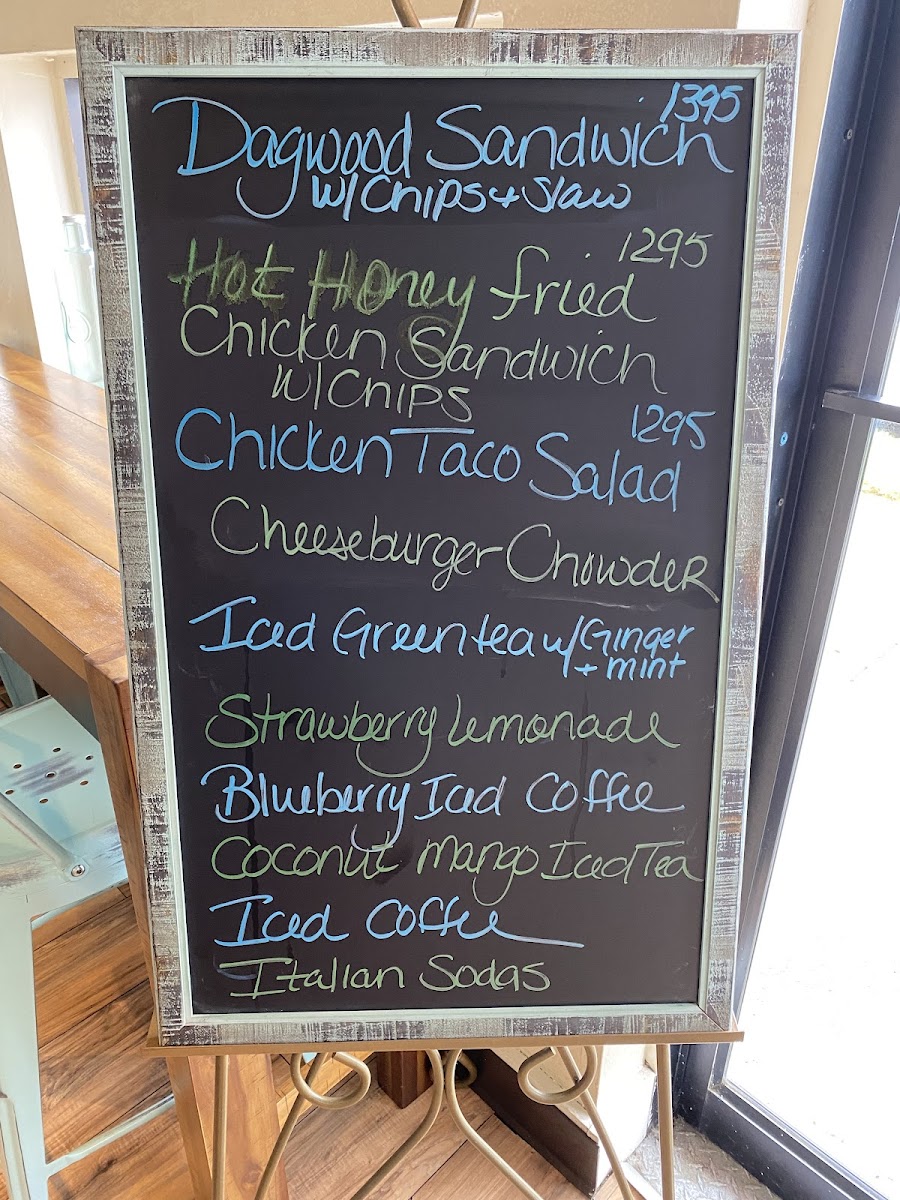 1395
Dagwood Sandwich
w/Chips + Slaw
1295
Hot Honey fried
Chicken Sandwich
w/Chips
1295
Chicken Taco Salad
Cheeseburger Chowder
Iced Green tea w/Ginger
+ mint
Strawberry Lemonade
Blueberry Iced Coffee
Coconut Mango Iced Tea
Iced Coffee
Italian Sodas